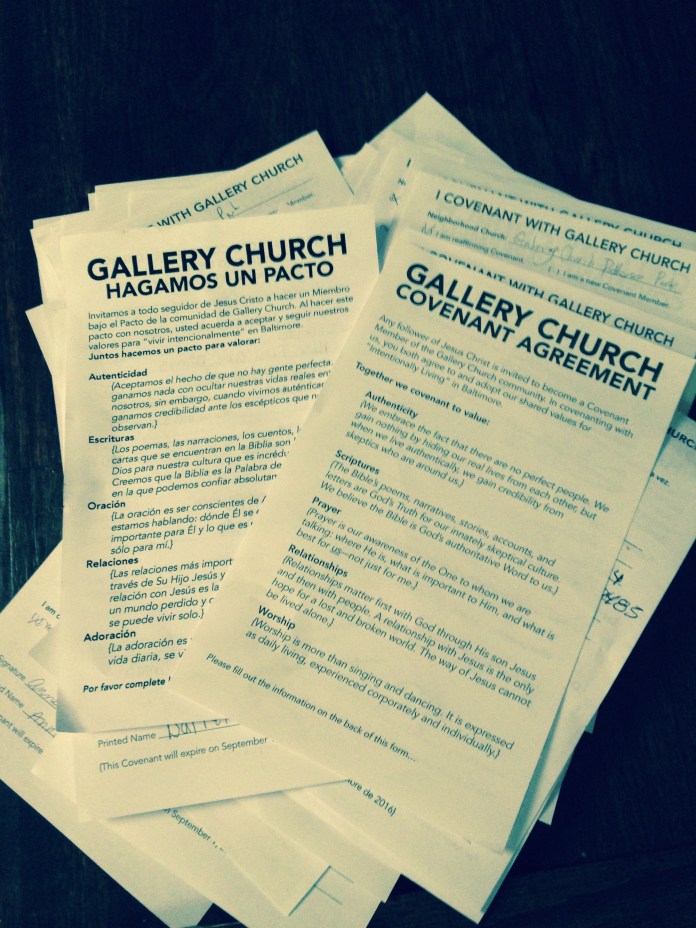 WITH GALLERY CHURCH
Member.
I COVENANT WITH GALLERY CHURCH
Neighborhood Church:
I am reaffirming Covenant
( ) I am a new Covenant Member.
COVENANT WITH GALLERY CHURCH
GALLERY CHURCH
HAGAMOS UN PACTO
Invitamos a todo seguidor de Jesus Cristo a hacer un Miembro
bajo el Pacto de la comunidad de Gallery Church. Al hacer este
pacto con nosotros, usted acuerda a aceptar y seguir nuestros
valores para "vivir intencionalmente" en Baltimore.
Juntos hacemos un pacto para valorar:
Autenticidad
{Aceptamos el hecho de que no hay gente perfecta.
ganamos nada con ocultar nuestras vidas reales
nosotros, sin embargo, cuando vivimos
ganamos credibilidad ante los escépticos que
observan.}
Escrituras
{Los poemas, las narraciones, los cuentos,
cartas que se encuentran en la Biblia son
Dios para nuestra cultura que es
Creemos que la Biblia es la Palabra de
en la que podemos confiar
Oración
{La oración es ser conscientes de
estamos hablando: dónde Él se
importante para Él y lo que es
sólo para mí.}
Relaciones
{Las relaciones más
través de Su Hijo Jesús y
relación con Jesús es la
un mundo perdido y
se puede vivir solo.}
Adoración
{La adoración es
vida diaria, se
Por favor complete
GALLERY CHURCH
COVENANT AGREEMENT
Any follower of Jesus Christ is invited to become a Covenant
Member of the Gallery Church community. In covenanting with
us, you both agree to and adopt our shared values for
"Intentionally Living" in Baltimore.
Together we covenant to value:
Authenticity
{We embrace the fact that there are no perfect people. We
gain nothing by hiding our real lives from each other, but
when we live authentically, we gain credibility from
skeptics who are around us.}
Scriptures
{The Bible's poems, narratives, stories, accounts, and
letters are God's Truth for our innately skeptical culture.
We believe the Bible is God's authoritative Word to us.}
Prayer
{Prayer is our awareness of the One to whom we are
talking: where He is, what is important to Him, and what is
best for us—not just for me.}
Relationships
{Relationships matter first with God through His son Jesus
and then with people. A relationship with Jesus is the only
hope for a lost and broken world. The way of Jesus cannot
be lived alone.}
Worship
{Worship is more than singing and dancing. It is expressed
as daily living, experienced corporately and individually.}
Please fill out the information on the back of this form...
Printed Name
{This Covenant will expire on September
de 2016}